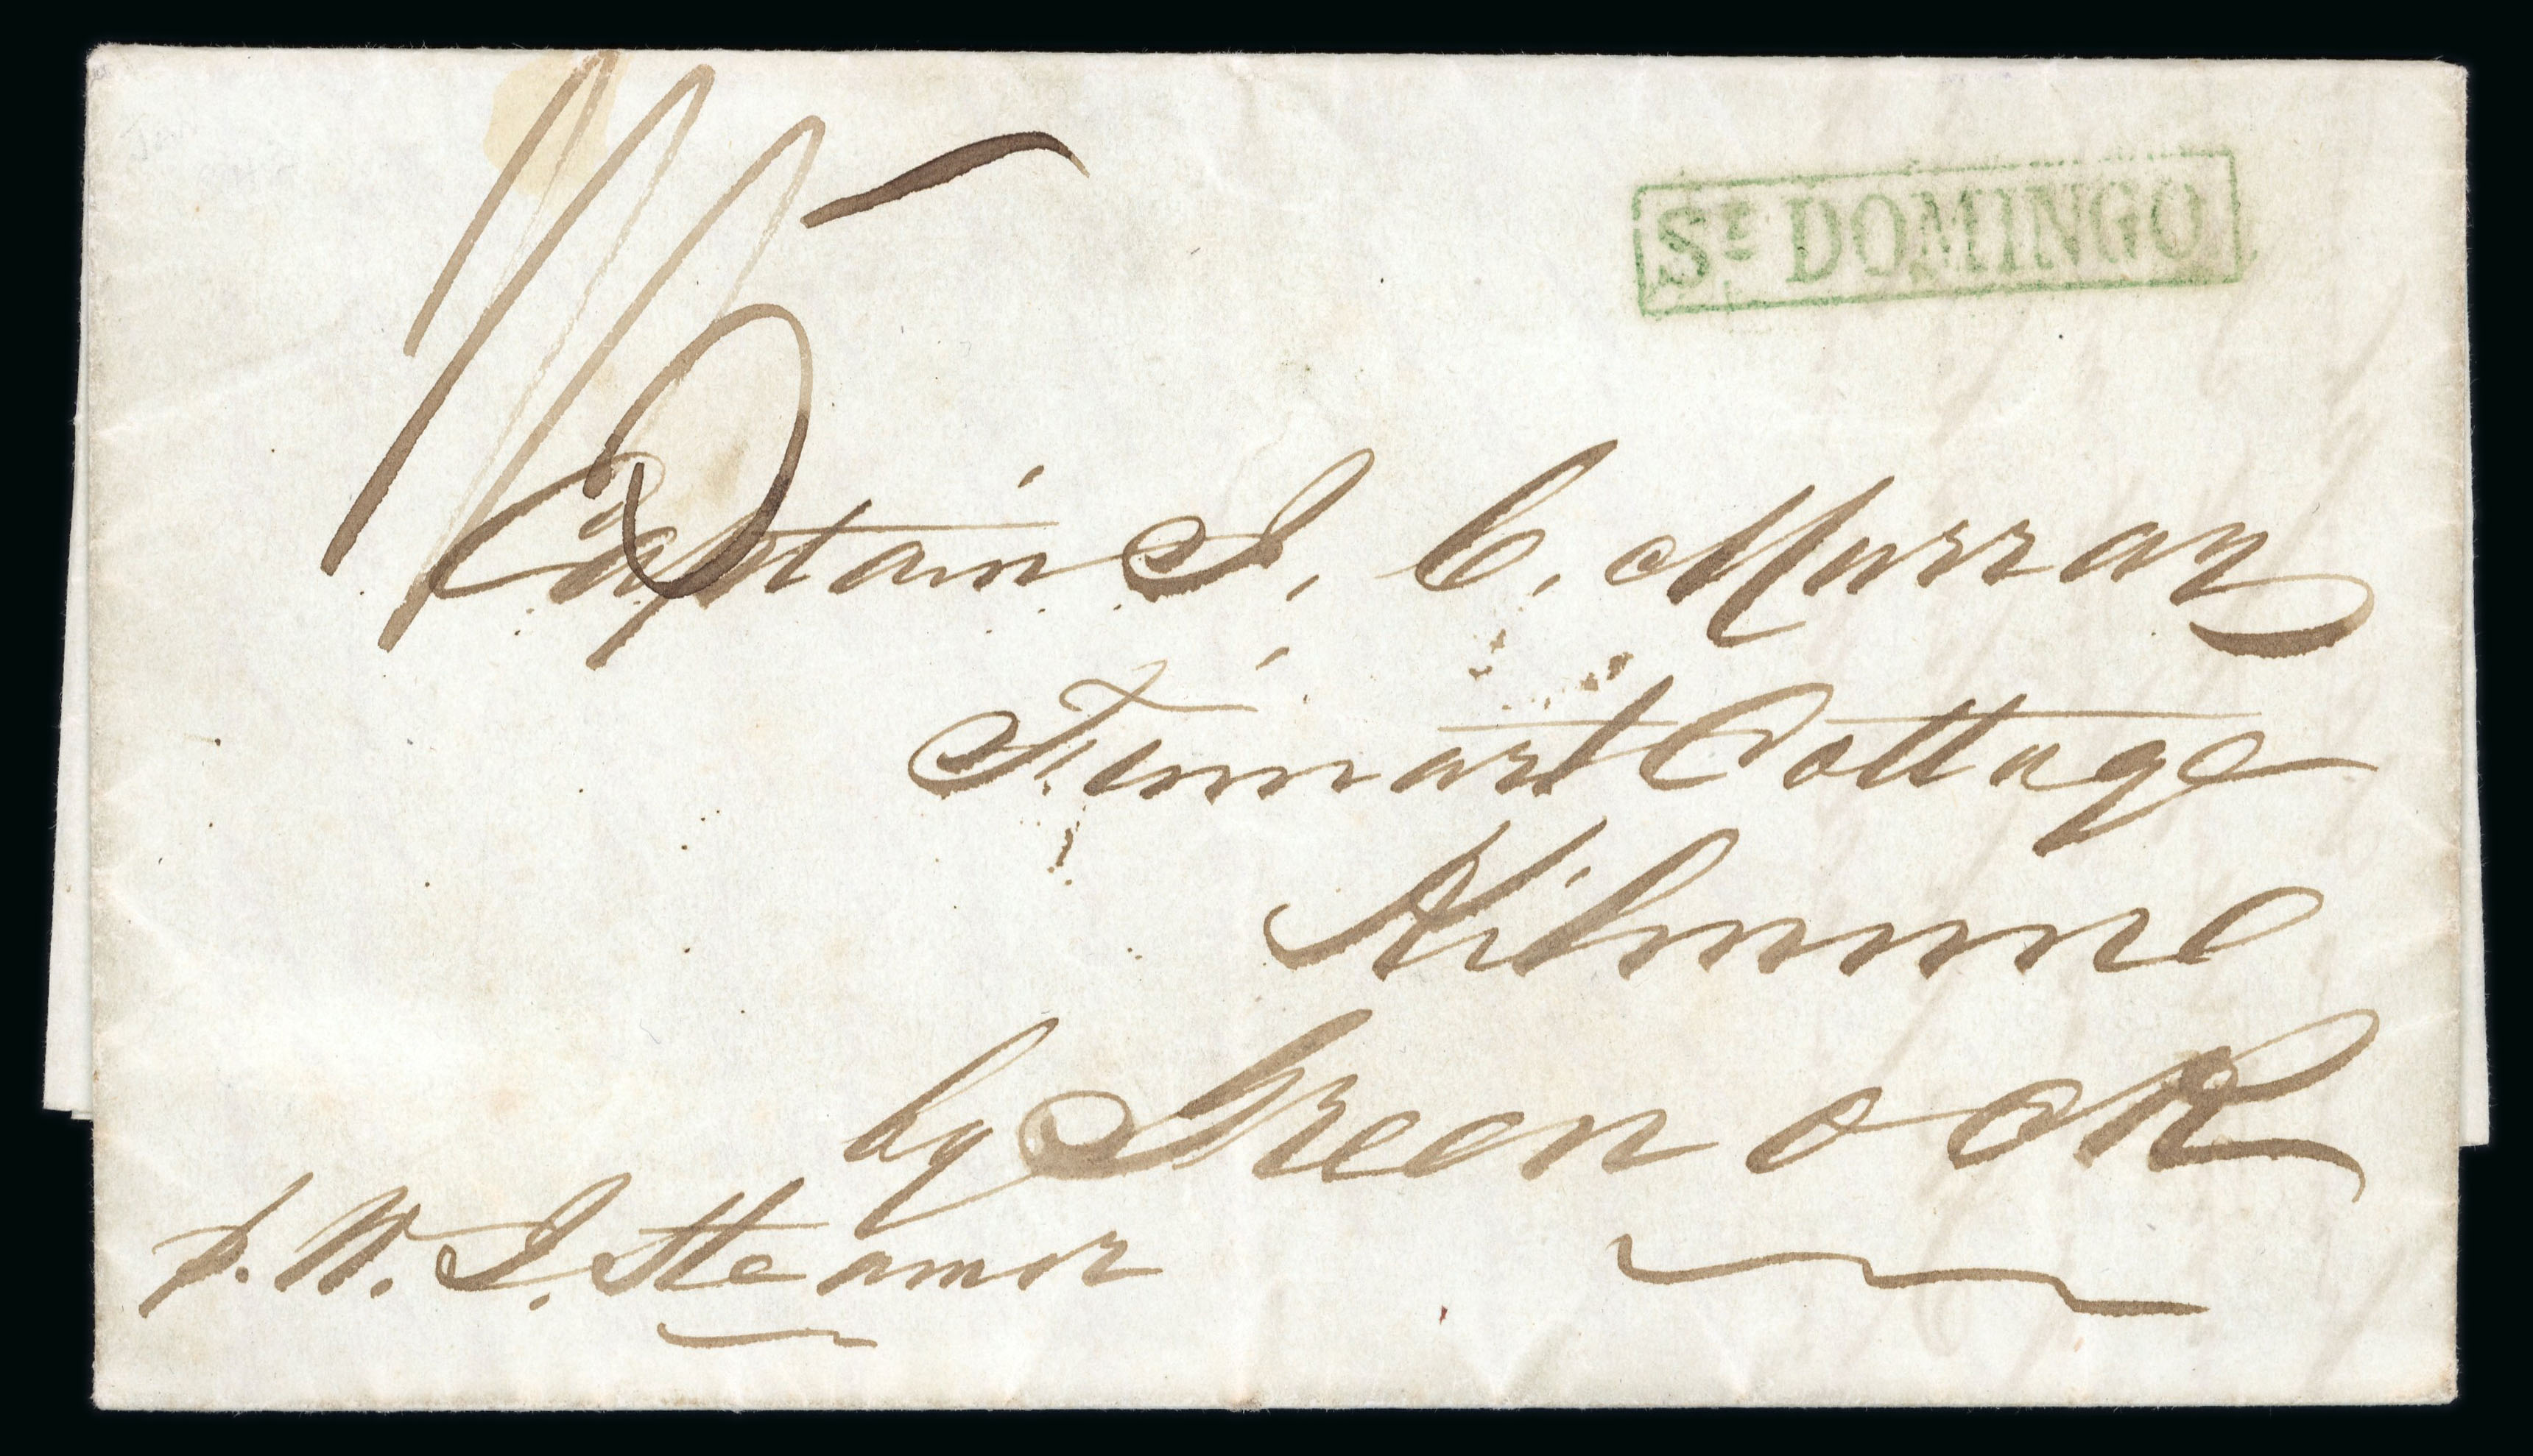 1/5
St DOMINGO
Captain J. C. Murray
Finnart Cottage
Kilmune
by Greenock
p. W. I. Steamer